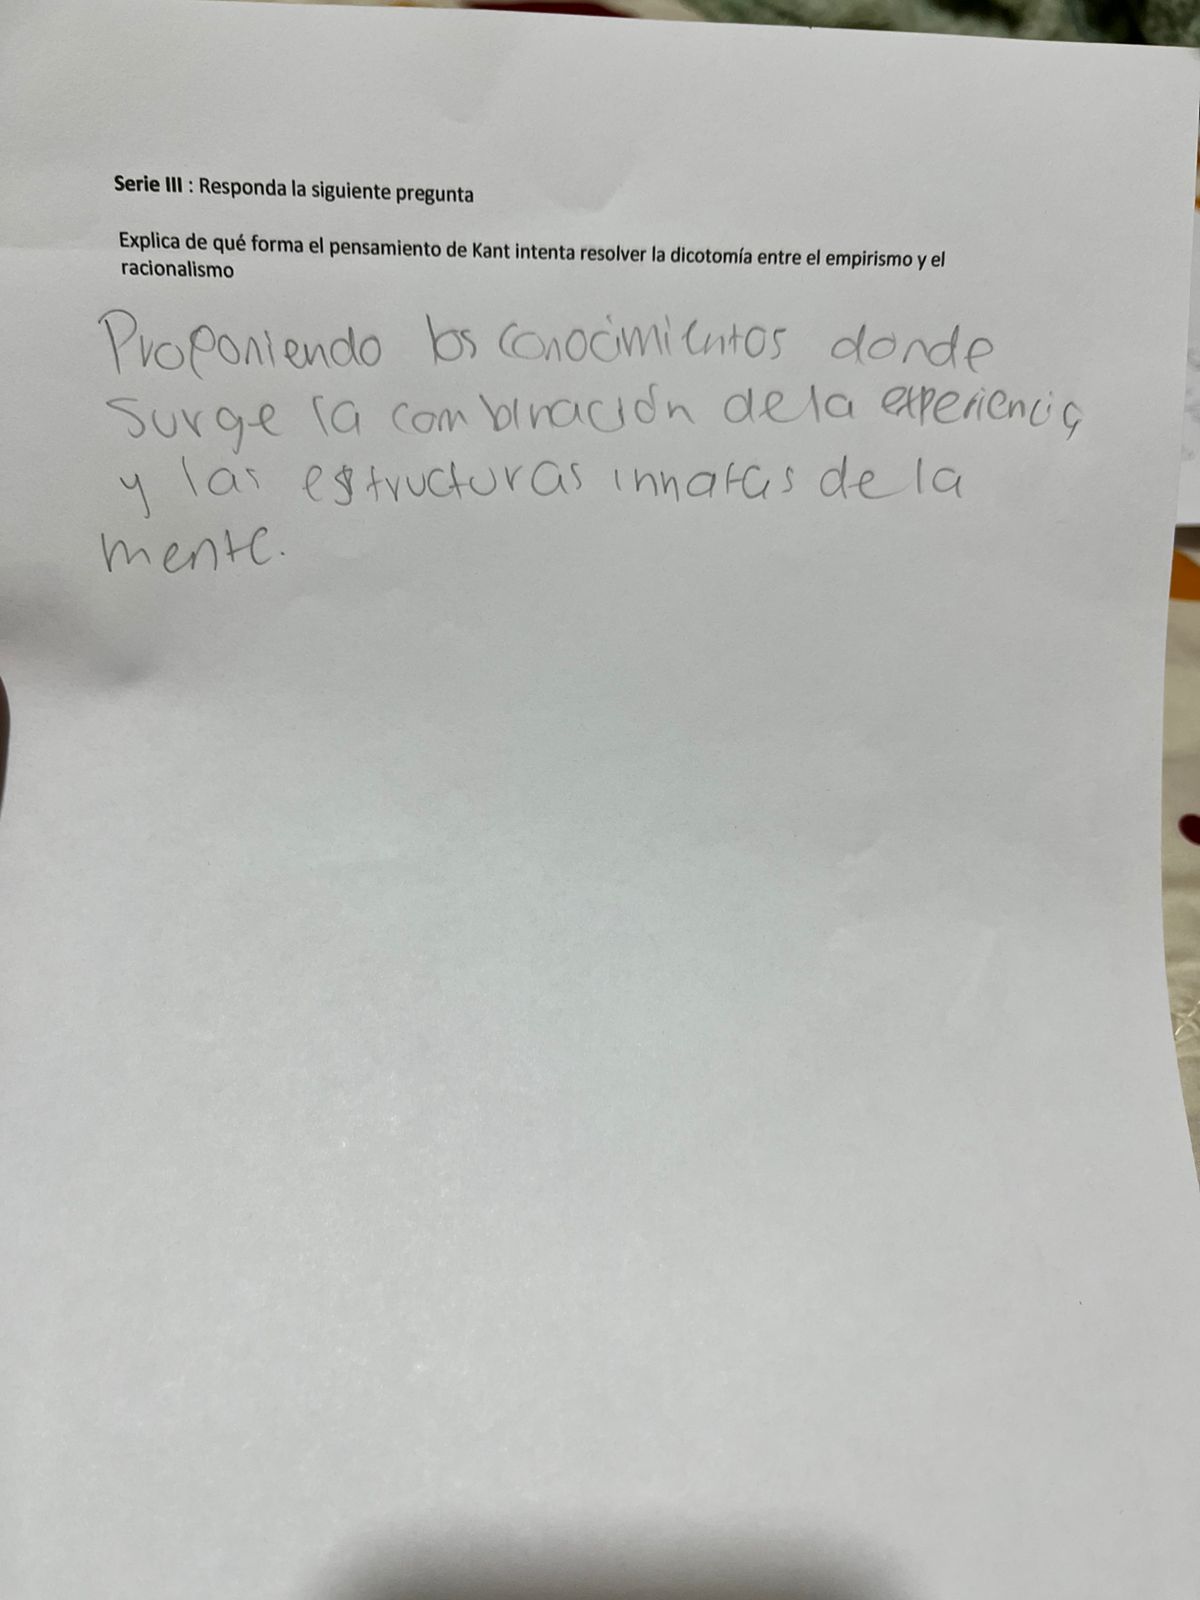 Serie III : Responda la siguiente pregunta
Explica de qué forma el pensamiento de Kant intenta resolver la dicotomía entre el empirismo y el
racionalismo
Proponiendo los conocimientos donde
surge la combinación de la experiencia
y las estructuras innatas de la
mente.